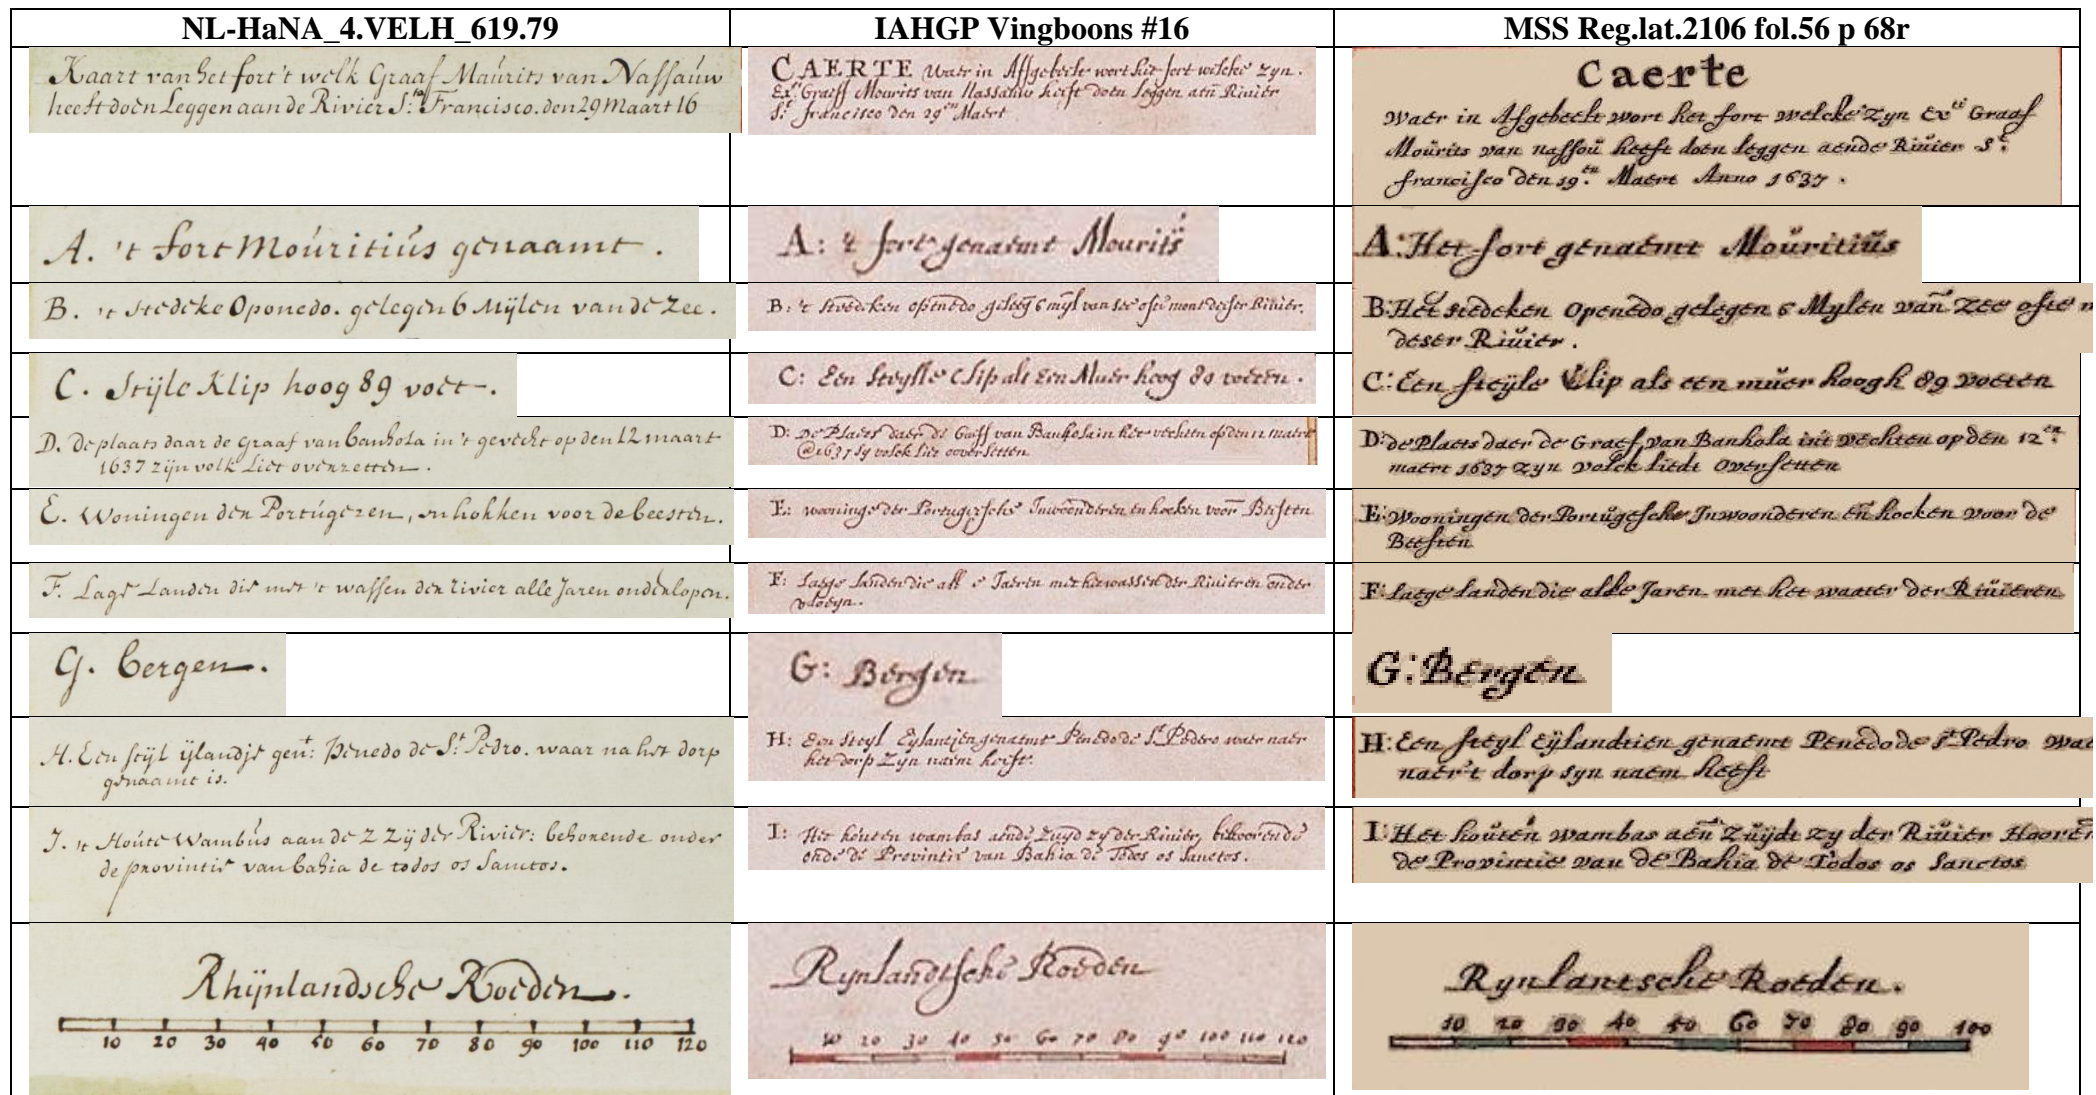 NL-HaNA_4.VELH_619.79
IAHGP Vingboons #16
MSS Reg.lat.2106 fol.56 p 68r
Kaart van het fort 't welk Graaf Maúrits van Nassaúw
heeft doen Leggen aan de Rivier S:ta Francisco. den 29 Maart 16
CAERTE Waer in Affgebeelt wort het fort welcke zyn.
Ex.tie Graeff Mourits van Nassauw heeft doen leggen aen Rivier
S.t francisco den 29.en Maert
Caerte
Waer in Afgebeelt wort het fort welcke Zyn Ex.tie Graaf
Moŭrits van nassoŭ heeft doen leggen aende Riŭier S.t
francisco den 19.en Maert Anno 1637.
A. 't fort Moúritiús genaamt.
A: 't fort genaemt Mourits
A: Het fort genaemt Moŭritiŭs
B. 't stedeke Oponedo. gelegen 6 Mijlen van de Zee.
B: 't Steedeken openedo geleeg 6 myl van see ofte mont deser Riuier.
B: Het stedeken Openedo gelegen 6 Mylen van Zee ofte
deser Riŭier.
C. Stijle Klip hoog 89 voet.
C: Een steylle Clip als een Muer hoog 89 voeten.
C: Een steyle Klip als een mŭer hoogh 89 voeten
D. de plaats daar de graaf van Banhola in 't gevecht op den 12 maart
1637 zijn volk Liet overzetten.
D: De Plaets daer de Graff van Banhola in het vechten op den 12 maert
@1637 sy volck liet oversetten
D: de Plaets daer de Graef van Banhola int vechten op den 12.en
maert 1637 zyn volck liedt Oversetten
E. Woningen der Portúgezen, en hokken voor de beesten.
E: wooninge der Portugische Inwoonderen en hocken voor Besten
E: Wooningen der Portŭgesche Inwoonderen en hocken voor de
Beesten
F. Lage Landen die met 't wassen der rivier alle Jaren onderlopen.
F: Laege landen die all e Jaeren met het wassen der Riuieren onder
vloeyn.
F: laege landen die alle Jaren met het waater der Riŭieren
G. bergen.
G: Bergen
G: Bergen
H. Een stijl ijlandje gen:t Penedo de S:t Pedro. waar na het dorp
genaamt is.
H: Een steyl Eylantjen genaemt Penedo de S.t Pedro waer naer
het dorp Zyn naem heeft.
H: Een steyl Eylandtien genaemt Penedo de S.t Pedro
naer't dorp syn naem heeft
I. 't Hoúte Wambús aan de Z Zij der Rivier: behorende onder
de provintie van bahia de todos os Sanctos.
I: Het houten wambas aende Zuyd zy der Riuier, behoorende
onde de Provintie van Bahia de Todos os Sanctos.
I: Het hoŭten wambas aen Zŭijdt Zy der Riŭier
de Provintie van de Bahia de Todos os Sanctos
Rhijnlandsche Roeden.
10 20 30 40 50 60 70 80 90 100 110 120
Rynlandtsche Roeden
10 20 30 40 50 60 70 80 90 100 110 120
Rynlantsche Roeden.
10 20 30 40 50 60 70 80 90 100